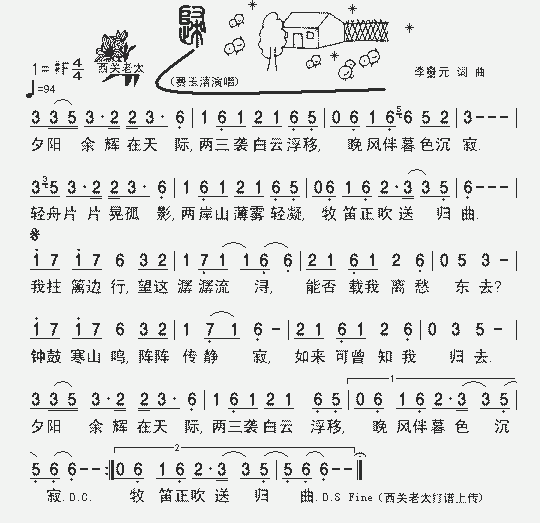 歸
西关老太
1=#F 4/4
♩=94
(费玉清演唱)
李登元 词 曲
3 3 5 3·2 2 3· 6 | 1 6 1 2 1 6 5 | 0 6 1 6 6 5 2 | 3 - - - |
夕阳 余 辉 在天 际, 两三袭白云浮移, 晚风伴暮色沉 寂.
3 5 3·2 2 3· 6 | 1 6 1 2 1 6 5 | 0 6 1 6 2·3 3 5 | 6 - - - |
轻舟片 片 晃孤 影, 两岸山薄雾轻凝, 牧 笛正吹 送 归 曲.
1 7 1 7 6 3 2 | 1 7 1 1 6 6 | 2 1 6 1 2 6 | 0 5 3 - |
我拄 篱边 行, 望这 潺 潺流 浔, 能否 载我 离 愁 东 去?
1 7 1 7 6 3 2 | 1 7 1 6 - | 2 1 6 1 2 6 | 0 3 5 - |
钟鼓 寒山 鸣, 阵阵 传 静 寂, 如来 可曾 知 我 归 去.
1
3 3 5 3·2 2 3· 6 | 1 6 1 2 1 6 5 | 0 6 1 6 2·3 3 5 |
夕阳 余 辉 在天 际, 两三袭白云 浮移, 晚 风伴暮 色 沉
2
5 6 6 - - :| 0 6 1 6 2·3 3 5 | 5 6 6 - - ||
寂.D.C. 牧 笛正吹 送 归 曲.D.S Fine (西关老太打谱上传)